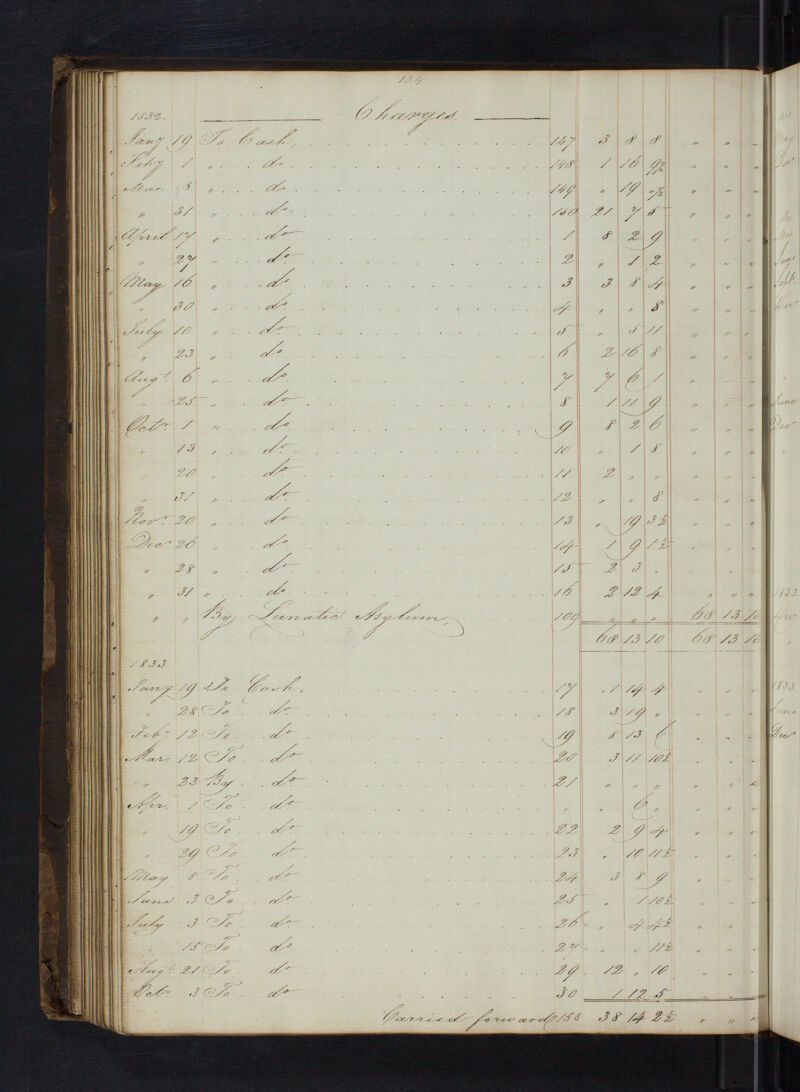 134.
1832. Charges.
Jany 19 To Cash, 147 3 8 8 " " "
Feby 1 " do 148 1 16 9½ " " "
Mar. 5 " do 149 " 19 "½ " " "
" 31 " do 150 21 7 5 " " "
April 17 " do 1 8 2 9 " " "
" 27 " do 2 " 1 2 " " "
May 16 " do 3 3 8 4 " " "
" 30 " do 4 " " 8 " " "
July 10 " do 5 " 5 11 " " "
" 23 " do 6 2 16 8 " " "
Augt 6 " do 7 7 6 1 " " "
" 25 " do 8 1 11 9 " " "
Octr 1 " do 9 8 2 6 " " "
" 13 " do 10 " 1 8 " " "
" 20 " do 11 2 " " " " "
" 31 " do 12 " " 8 " " "
Novr 20 " do 13 " 19 3½ " " "
Decr 26 " do 14 1 9 1½ " " "
" 28 " do 15 2 3 " " " "
" 31 " do 16 2 12 4 " " "
" " By Lunatic Asylum, 109 " " " 68 13 10
68 13 10 68 13 10
1833
Jany 19 To Cash, 17 1 14 4 " " "
" 28 To do 18 3 19 " " " "
Feby 12 To do 19 8 13 6 " " "
Mar 12 To do 20 3 11 10½ " " "
" 23 By do 21 " " " " "
Apr. 1 To do " " 6 " " " "
" 19 To do 22 2 9 4 " " "
" 29 To do 23 " 10 11½ " " "
May 8 To do 24 3 8 9 " " "
June 3 To do 25 " 1 10½ " " "
July 3 To do 26 " 4 4½ " " "
" 15 To do 27 " " 11½ " " "
Augt 21 To do 29 12 " 10 " " "
Octr 3 To do 30 1 12 5 " " "
Carried forward 158 38 14 2½ " " "
May
Decr
June
Sept
June
Decr
1832
Decr
1833
June
Decr